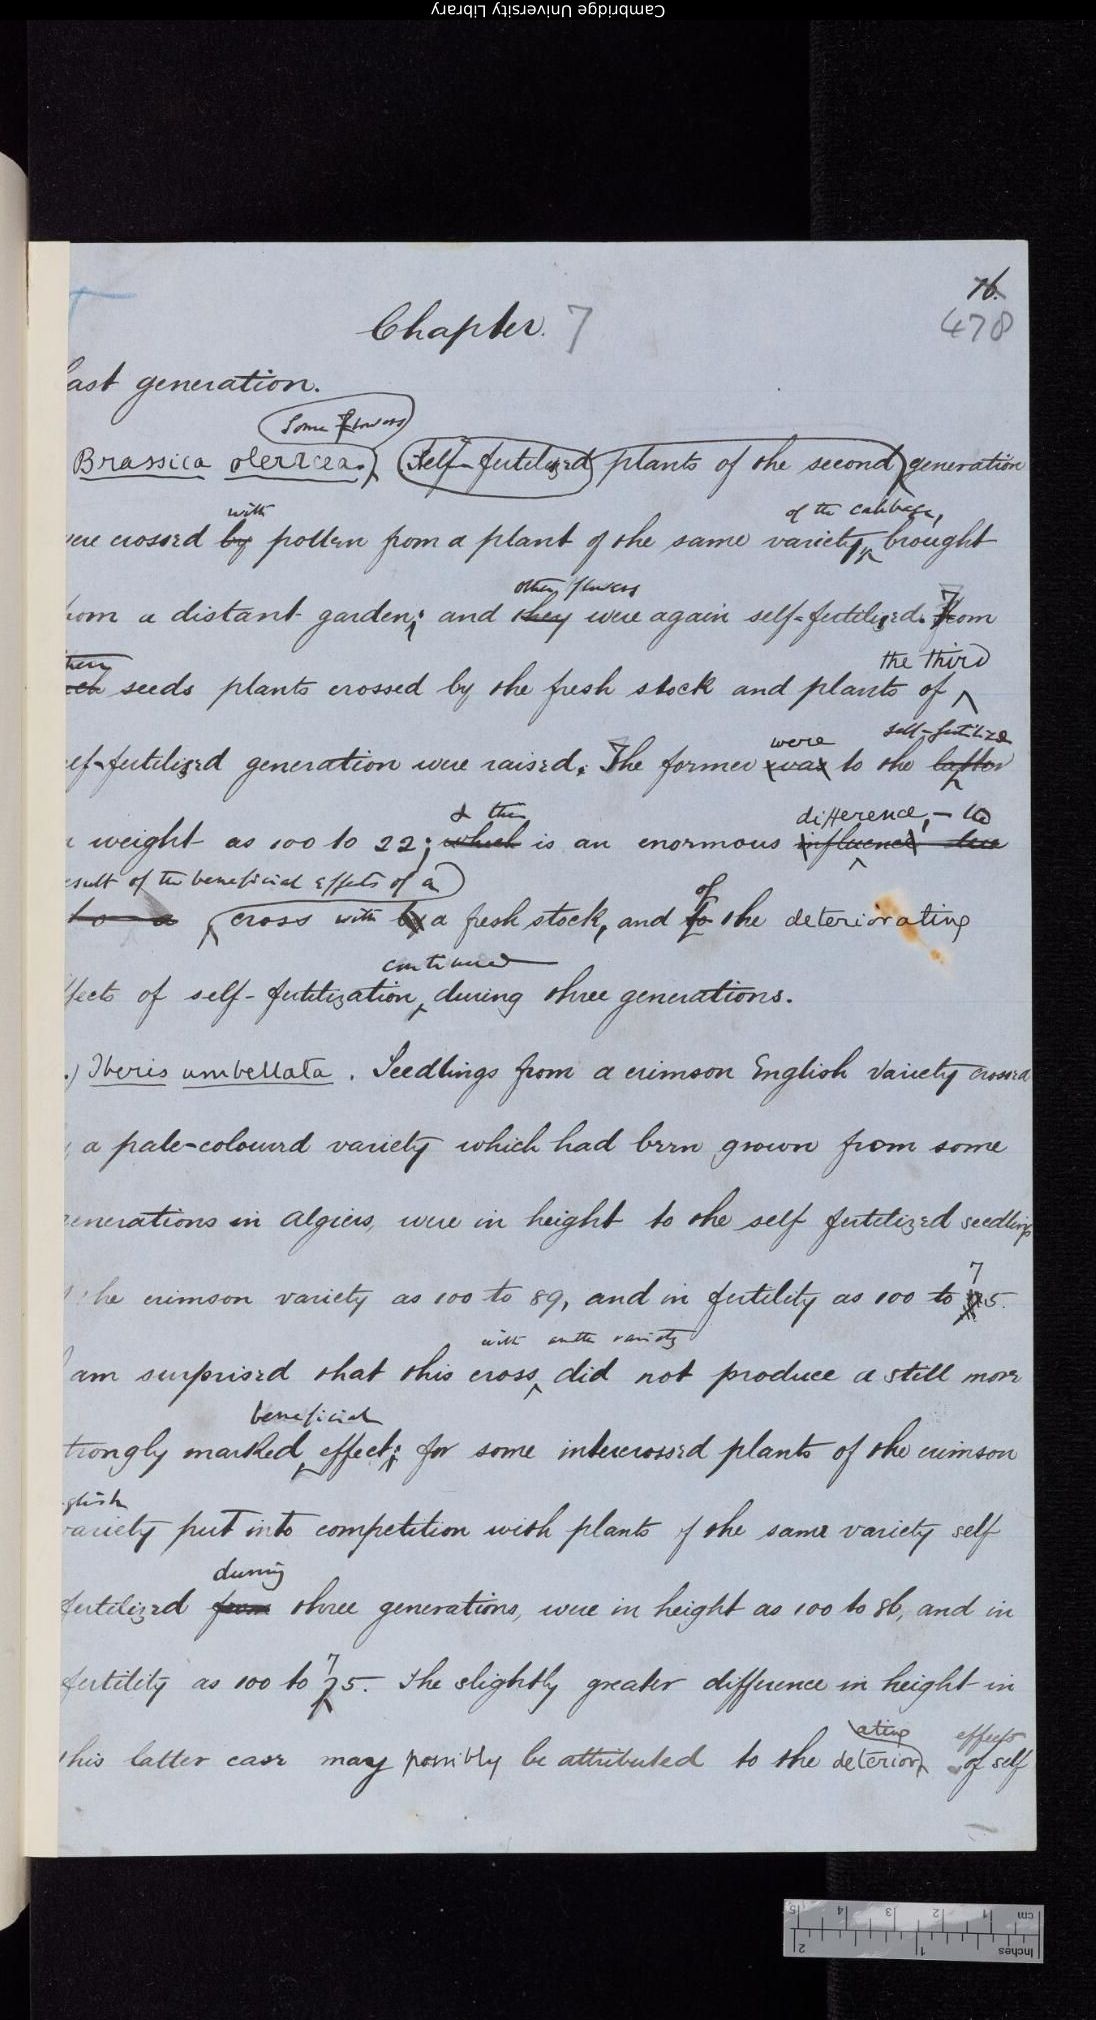 Cambridge University Library
16.
Chapter. 7
478
last generation.
Some flowers
Brassica oleracea. Self-fertilized plants of the second generation
with of the cabbage,
were crossed by pollen from a plant of the same variety, brought
other flowers
from a distant garden; and they were again self-fertilized. From
the third
seeds plants crossed by the fresh stock and plants of
were self-fertilized
self-fertilized generation were raised. The former was to the latter
& this difference, – the
in weight as 100 to 22; which is an enormous influence due
result of the beneficial effects of a
to a cross with by a fresh stock, and of to the deteriorating
continued
effects of self-fertilization, during three generations.
.) Iberis umbellata. Seedlings from a crimson English variety crossed
a pale-coloured variety which had been grown from some
generations in Algiers, were in height to the self fertilized seedlings
the crimson variety as 100 to 89, and in fertility as 100 to 75.
with another variety
I am surprised that this cross, did not produce a still more
beneficial
strongly marked, effect; for some intercrossed plants of the crimson
English
variety put into competition with plants of the same variety self
during
fertilized from three generations, were in height as 100 to 86, and in
7
fertility as 100 to 75. The slightly greater difference in height in
ating effects
this latter case may possibly be attributed to the deterior of self
5 4 3 2 1 cm
2 1 Inches